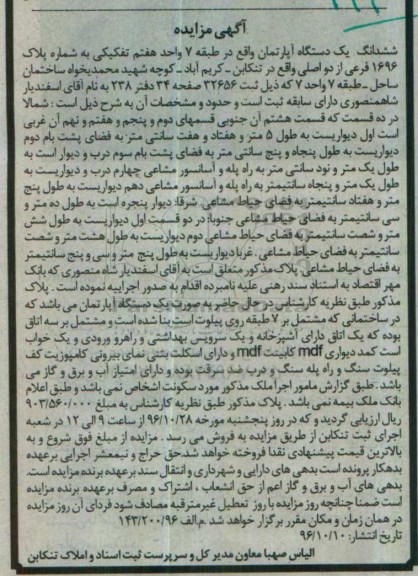 آگهی مزایده
ششدانگ یک دستگاه آپارتمان واقع در طبقه ۷ واحد هفتم تفکیکی به شماره پلاک
۱۶۹۶ فرعی از دو اصلی واقع در تنکابن ـ کریم آباد ـ کوچه شهید محمدیخواه ساختمان
ساحل ـ طبقه ۷ واحد ۷ که ذیل ثبت ۳۲۶۵۶ صفحه ۳۴ دفتر ۲۳۸ به نام آقای اسفندیار
شاهمنصوری دارای سابقه ثبت است و حدود و مشخصات آن به شرح ذیل است : شمالا
در ده قسمت که قسمت هشتم آن جنوبی قسمهای دوم و پنجم و هفتم و نهم آن غربی
است اول دیواریست به طول ۵ متر و هفتاد و هفت سانتی متر به فضای پشت بام دوم
دیواریست به طول پنجاه و پنج سانتی متر به فضای پشت بام سوم درب و دیوار است به
طول یک متر و نود سانتی متر به راه پله و آسانسور مشاعی چهارم درب و دیواریست به
طول یک متر و پنجاه سانتیمتر به راه پله و آسانسور مشاعی دهم دیواریست به طول پنج
متر و هفتاد سانتیمتر به فضای حیاط مشاعی. شرقا: دیوار پنجره است به طول ده متر و
سی سانتیمتر به فضای حیاط مشاعی جنوبا: در دو قسمت اول دیواریست به طول شش
متر و شصت سانتیمتر به فضای حیاط مشاعی دوم دیواریست به طول هشت متر و شصت
سانتیمتر به فضای حیاط مشاعی . غربا دیواریست به طول پنج متر و سی و پنج سانتیمتر
به فضای حیاط مشاعی پلاک مذکور متعلق است به آقای اسفندیار شاه منصوری که بانک
مهر اقتصاد به استناد سند رهنی علیه نامبرده اقدام به صدور اجراییه نموده است . پلاک
مذکور طبق نظریه کارشناس در حال حاضر به صورت یک دستگاه آپارتمان می باشد که
در ساختمانی که مشتمل بر ۷ طبقه روی پیلوت است بنا شده است و مشتمل بر سه اتاق
بوده که یک اتاق دارای آشپزخانه و یک سرویس بهداشتی و راهرو ورودی و یک خواب
است کمد دیواری mdf کابینت mdf و دارای اسکلت بتنی نمای بیرونی کامپوزیت کف
پیلوت سنگ و راه پله سنگ و درب ضد سرقت بوده و دارای امتیاز آب و برق و گاز می
باشد .طبق گزارش مامور اجرا ملک مذکور مورد سکونت اشخاص نمی باشد و طبق اعلام
بانک ملک بیمه نمی باشد . پلاک مذکور طبق نظریه کارشناس به مبلغ ۹۰۳/۵۶۰/۰۰۰
ریال ارزیابی گردید و که در روز پنجشنبه مورخه ۹۶/۱۰/۲۸ از ساعت ۹ الی ۱۲ در شعبه
اجرای ثبت تنکابن از طریق مزایده به فروش می رسد . مزایده از مبلغ فوق شروع و به
بالاترین قیمت پیشنهادی نقدا فروخته خواهد شد. حق حراج و نیمعشر اجرایی برعهده
بدهکار پرونده است بدهی های دارایی و شهرداری و انتقال سند برعهده برنده مزایده است.
بدهی های آب و برق و گاز اعم از حق انشعاب ، اشتراک و مصرف برعهده برنده مزایده
است ضمنا چنانچه روز مزایده با روز تعطیل غیرمترقبه مصادف شود فردای آن روز مزایده
در همان زمان و مکان مقرر برگزار خواهد شد .م الف ۱۴۳/۲۰۰/۹۶
تاریخ انتشار: ۹۶/۱۰/۱۰
الیاس صهبا معاون مدیر کل و سرپرست ثبت اسناد و املاک تنکابن